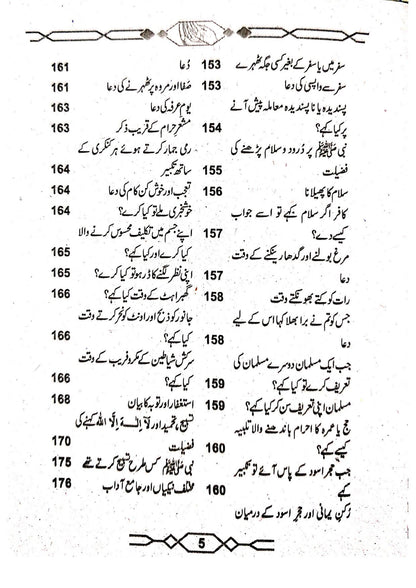 سفر میں یا سفر کے بغیر کسی جگہ ٹھہرے 153
سفر سے واپسی کی دعا 153
پسندیدہ یا ناپسندیدہ معاملہ پیش آنے
پر کیا کہے؟ 154
نبی ﷺ پر درود و سلام پڑھنے کی
فضیلت 155
سلام کا پھیلانا 156
کافر اگر سلام کہے تو اسے جواب
کیسے دے؟ 157
مرغ بولنے اور گدھا رینکنے کے وقت
دعا 157
رات کو کتے بھونکتے وقت 158
جس کو تم نے برا بھلا کہا اس کے لیے
دعا 158
جب ایک مسلمان دوسرے مسلمان کی
تعریف کرے تو کیا کہے؟ 159
مسلمان اپنی تعریف سن کر کیا کہے؟ 159
حج یا عمرہ کا احرام باندھنے والا تلبیہ
کیسے کہے؟ 160
جب حجر اسود کے پاس آئے تو تکبیر
کہے 160
رکن یمانی اور حجر اسود کے درمیان
دُعا 161
صفا اور مروہ پر ٹھہرنے کی دعا 161
یوم عرفہ کی دعا 163
مشعر حرام کے قریب ذکر 163
رمی جمار کرتے ہوئے ہر کنکری کے
ساتھ تکبیر 164
تعجب اور خوش کن کام کی دعا 164
خوشخبری ملے تو کیا کرے؟ 164
اپنے جسم میں تکلیف محسوس کرنے والا
کیا کرے اور کیا کہے؟ 165
اپنی نظر لگنے کا ڈر ہو تو کیا کرے؟ 165
گھبراہٹ کے وقت کیا کہے؟ 166
جانور کو ذبح اور اونٹ کو نحر کرتے وقت
کیا کہے؟ 166
سرکش شیاطین کے مکر و فریب کے وقت
کیا کہے؟ 166
استغفار اور توبہ کا بیان 168
تسبیح، تحمید اور لَا إِلٰهَ إِلَّا اللّٰه کہنے کی
فضیلت 170
نبی ﷺ کس طرح تسبیح کرتے تھے 175
مختلف نیکیاں اور جامع آداب 176
5